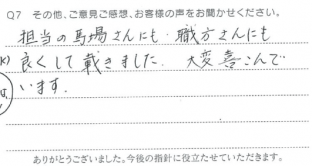 Q7 その他、ご意見ご感想、お客様の声をお聞かせください。
担当の馬場さんにも 職方さんにも
良くして戴きました. 大変喜こんで
います.
ありがとうございました。今後の指針に役立たせていただきます。